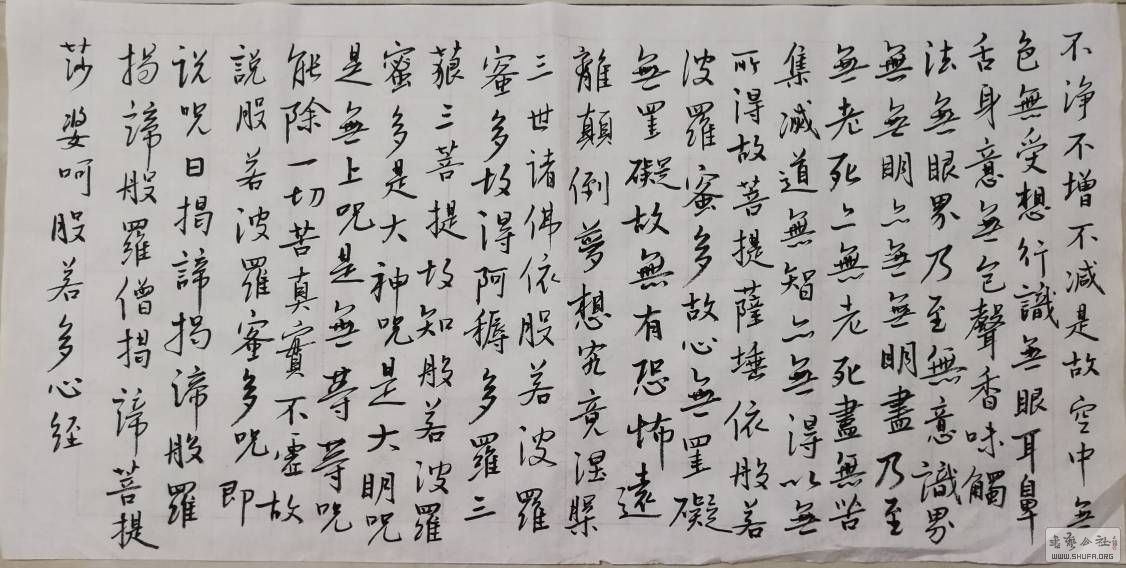 不淨不增不減是故空中無
色無受想行識無眼耳鼻
舌身意無色聲香味觸
法無眼界乃至無意識界
無無明亦無無明盡乃至
無老死亦無老死盡無苦
集滅道無智亦無得以無
所得故菩提薩埵依般若
波羅蜜多故心無罣礙
無罣礙故無有恐怖遠
離顛倒夢想究竟涅槃
三世諸佛依般若波羅
蜜多故得阿耨多羅三
藐三菩提故知般若波羅
蜜多是大神呪是大明呪
是無上呪是無等等呪
能除一切苦真實不虛故
說般若波羅蜜多呪即
说呪曰揭諦揭諦般羅
揭諦般羅僧揭諦菩提
莎婆呵般若多心経
書藝公社
WWW.SHUFA.ORG